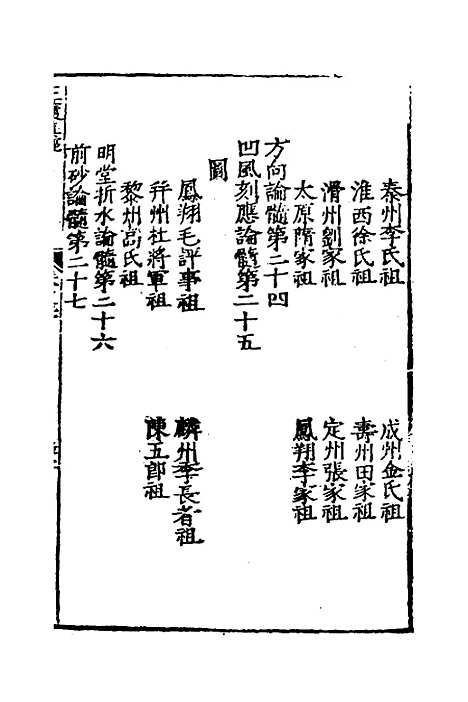 秦州李氏祖　成州金氏祖
淮西徐氏祖　壽州田家祖
滑州劉家祖　定州張家祖
太原隋家祖　鳳翔李家祖
方向論髓第二十四
凹風刻應論髓第二十五
圖
鳳翔毛評事祖　麟州李長者祖
幷州杜將軍祖　陳五郎祖
黎州高氏祖
明堂折水論髓第二十六
前砂論髓第二十七